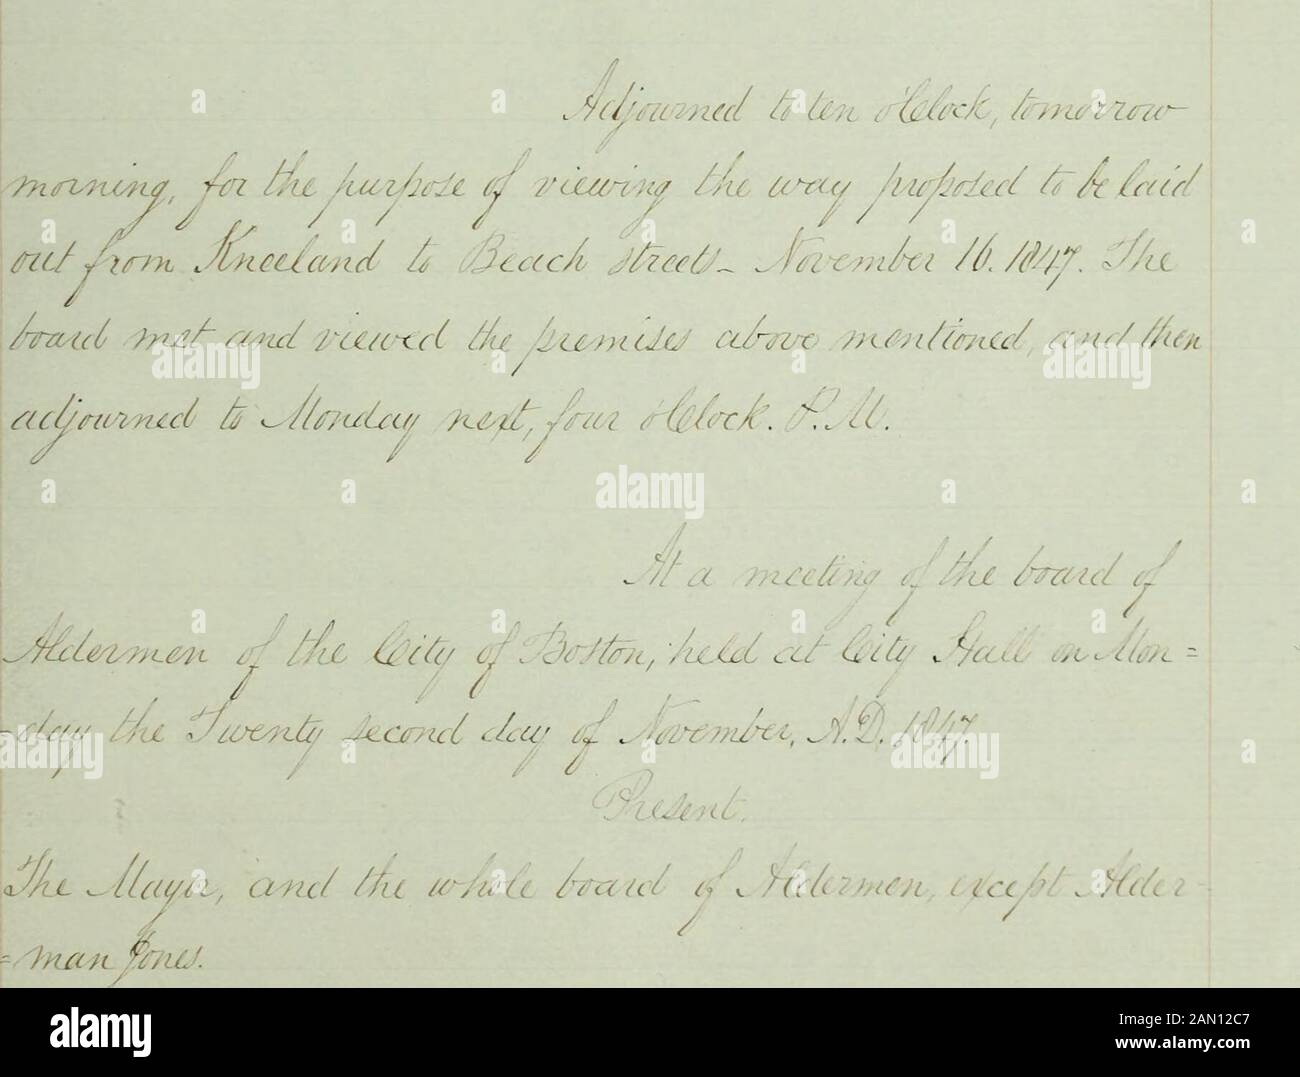 Adjourned to ten o'Clock, tomorrow
morning, for the purpose of viewing the way proposed to be laid
out from Kneeland to Beach streets_ November 16. 1847. The
board met and viewed the premises above mentioned, and then
adjourned to Monday next, four o'Clock. P. M.
alamy
At a meeting of the board of
Aldermen of the City of Boston, held at City Hall on Mon=
-day the Twenty second day of November, A.D. 1847.
Present.
The Mayor, and the whole board of Aldermen, except Alder-
=man Jones.
alamy
Image ID: 2AN12C7
www.alamy.com